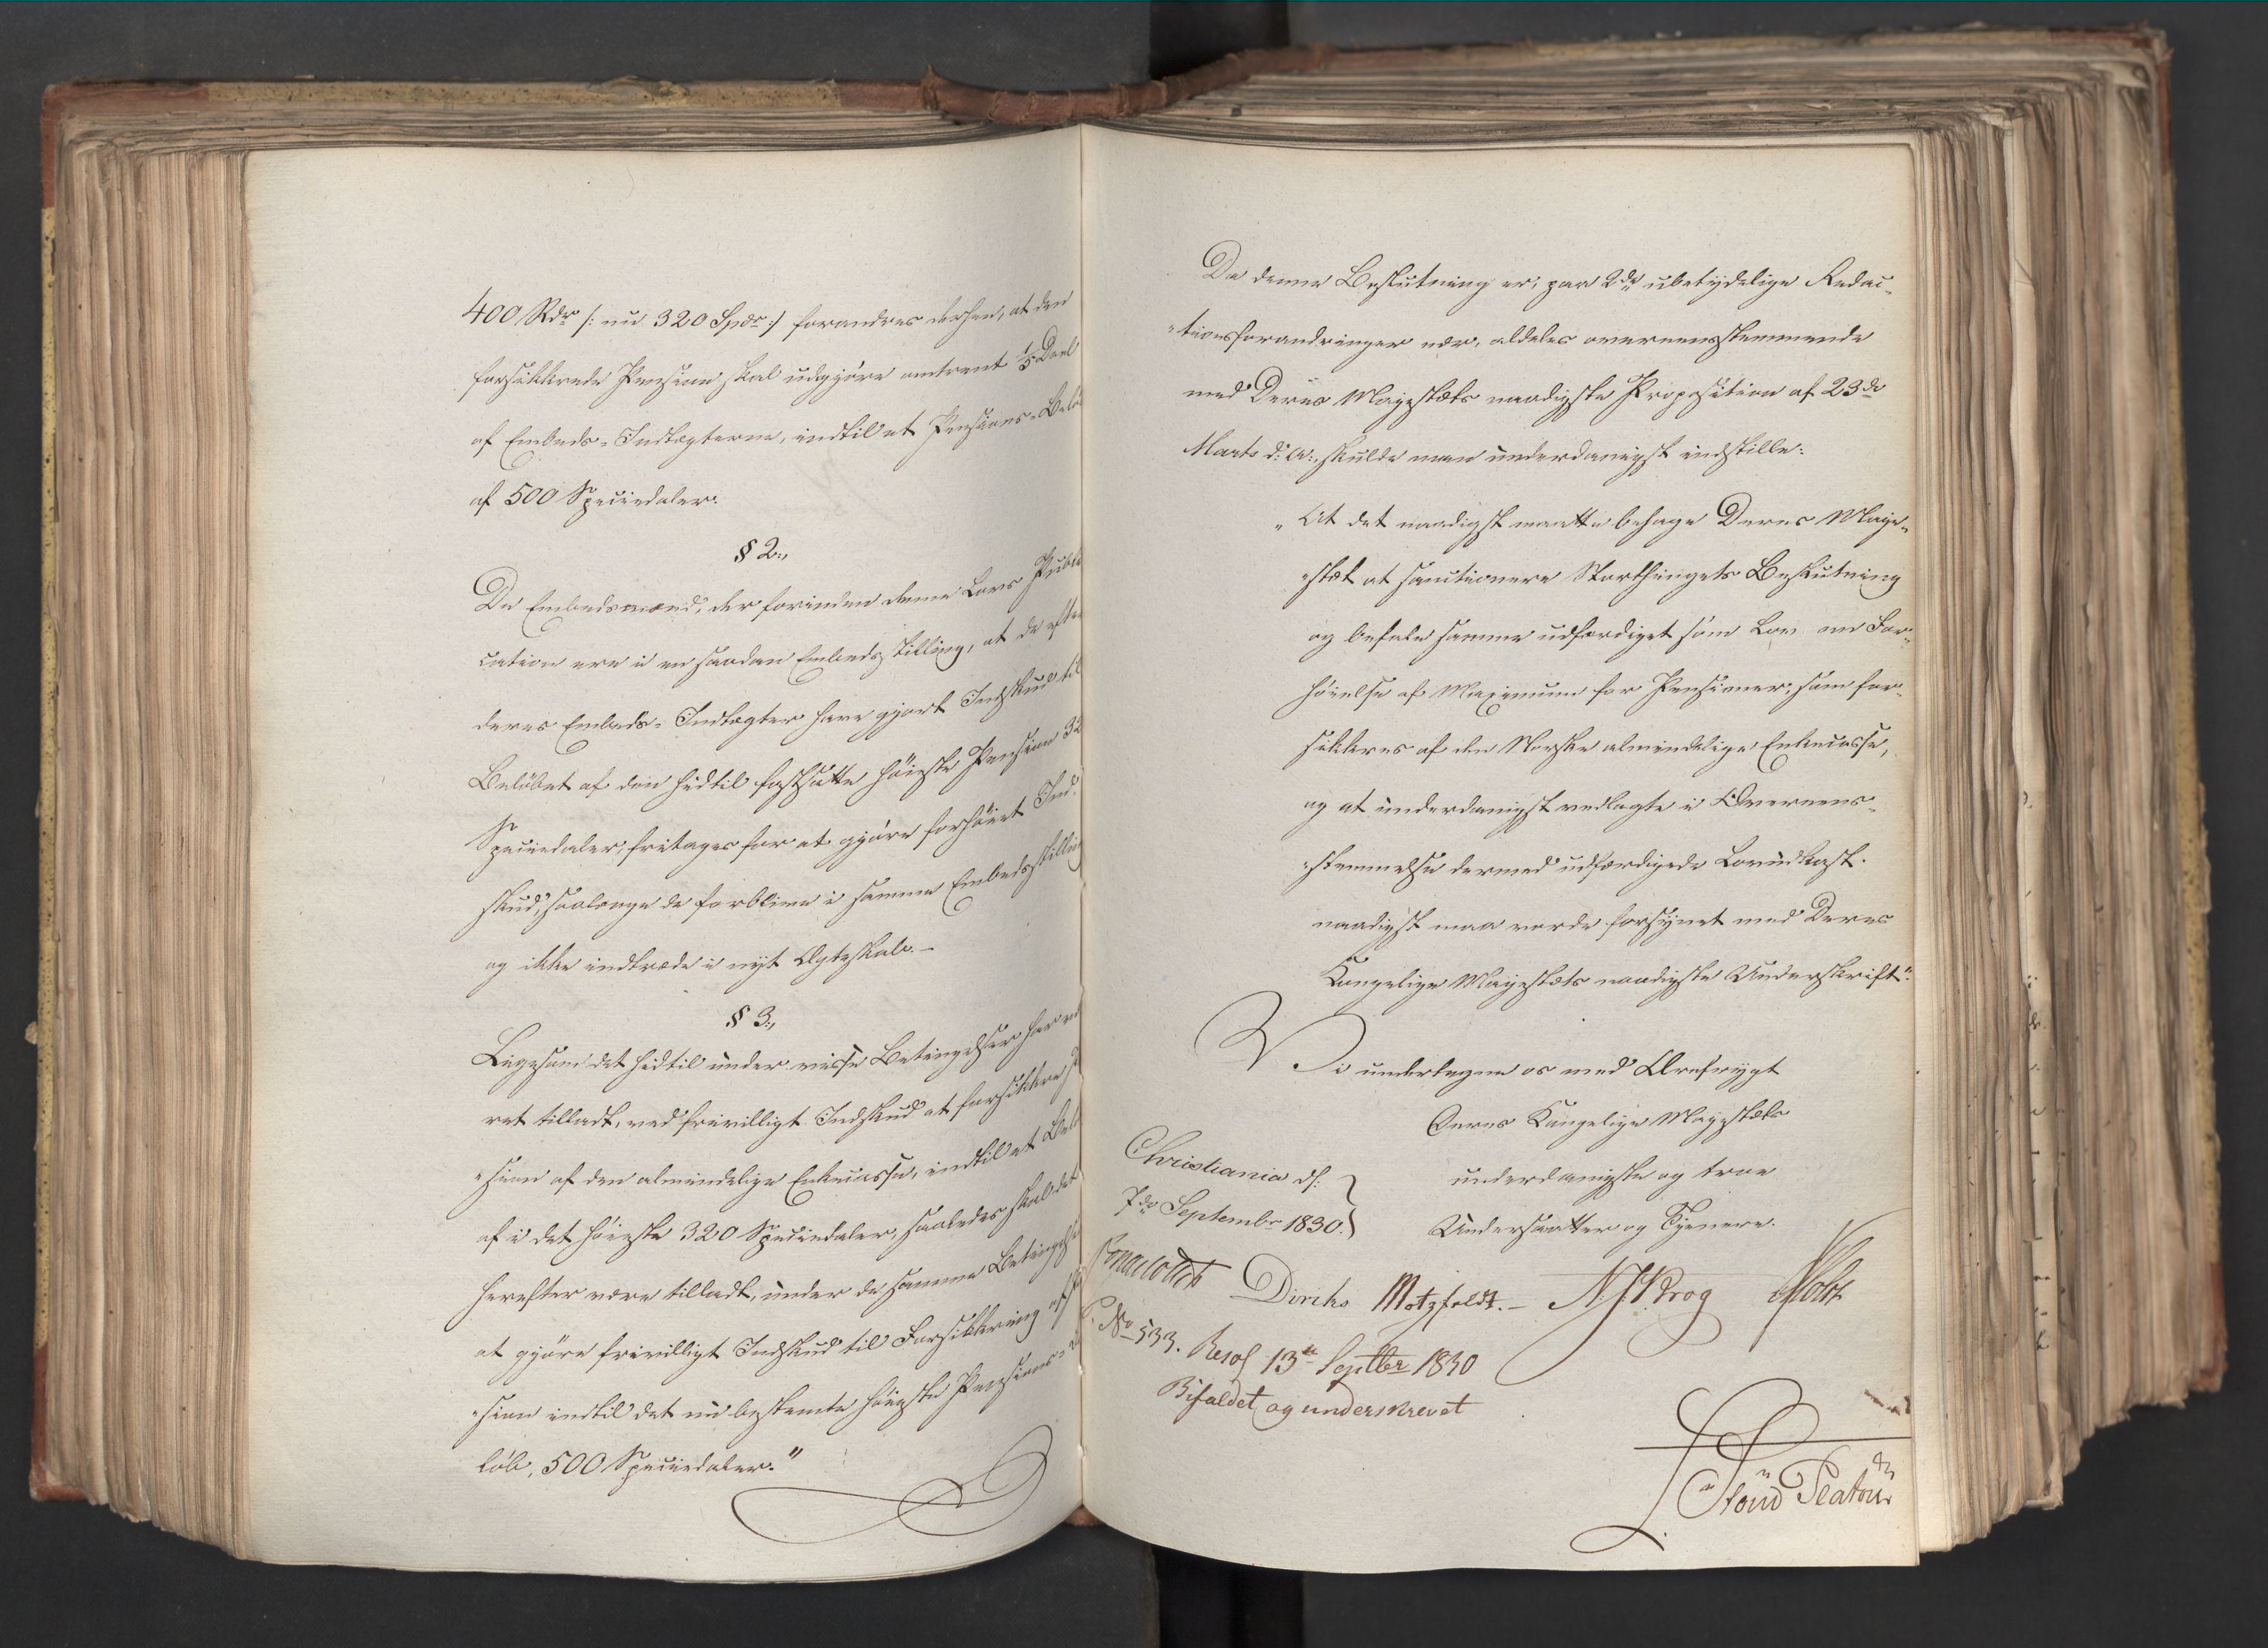 400 Rdr /: nu 320 Spdr :/ forandres derhen, at den
forsikkrede Pension skal udgjøre omtrent 1/5 Deel
af Embeds-Indtægterne, indtil et Pensions-Belø
af 500 Speciedaler.
§ 2.,
De Embedsmænd, der forinden denne Lovs Publi
cation ere i en saadan Embedsstilling, at de efter
deres Embeds-Indtægter have gjort Indskud til
Beløbet af den hidtil fastsatte høieste Pension 32
Speciedaler, fritages for at gjøre forhøiet Ind-
skud, saalænge de forblive i samme Embedsstilling
og ikke indtræde i nyt Ægteskab. -
§ 3.,
Ligesom det hidtil under visse Betingelser har væ
ret tilladt, ved frivilligt Indskud at forsikkre
"sion af den almindelige Enkecasse, indtil et Belø
af i det høieste 320 Speciedaler, saaledes skal det
herefter være tilladt, under de samme Betingelse
at gjøre frivilligt Indskud til Forsikkring af
"sion indtil det nu bestemte høieste Pensions-
løb, 500 Speciedaler."
Da denne Beslutning er, paa 2de ubetydelige Redac-
"tionsforandringer nær, aldeles overeensstemmende
med Deres Majestæts naadigste Proposition af 23de
Marts d: A:, skulde man underdanigst indstille:
"At det naadigst maatte behage Deres Maje-
"stæt at sanctionere Storthingets Beslutning
og befale samme udfærdiget som Lov om For-
høielse af Maximum for Pensioner, som for-
sikkres af den Norske almindelige Enkecasse,
og at underdanigst vedlagte i Overeens-
"stemmelse dermed udfærdigede Lovudkast.
naadigst maa vorde forsynet med Deres
Kongelige Majestæts naadigste Underskrift".
Vi undertegne os med Ærefrygt
Deres Kongelige Majestæts
underdanigste og troe
Undersaatter og Tjenere.
Christiania d.
7de Septembr 1830.
Diriks Motzfeldt. - N J Krog Holst
P. No 533. Resol 13te Septbr 1830
Bifaldet og underskrevet